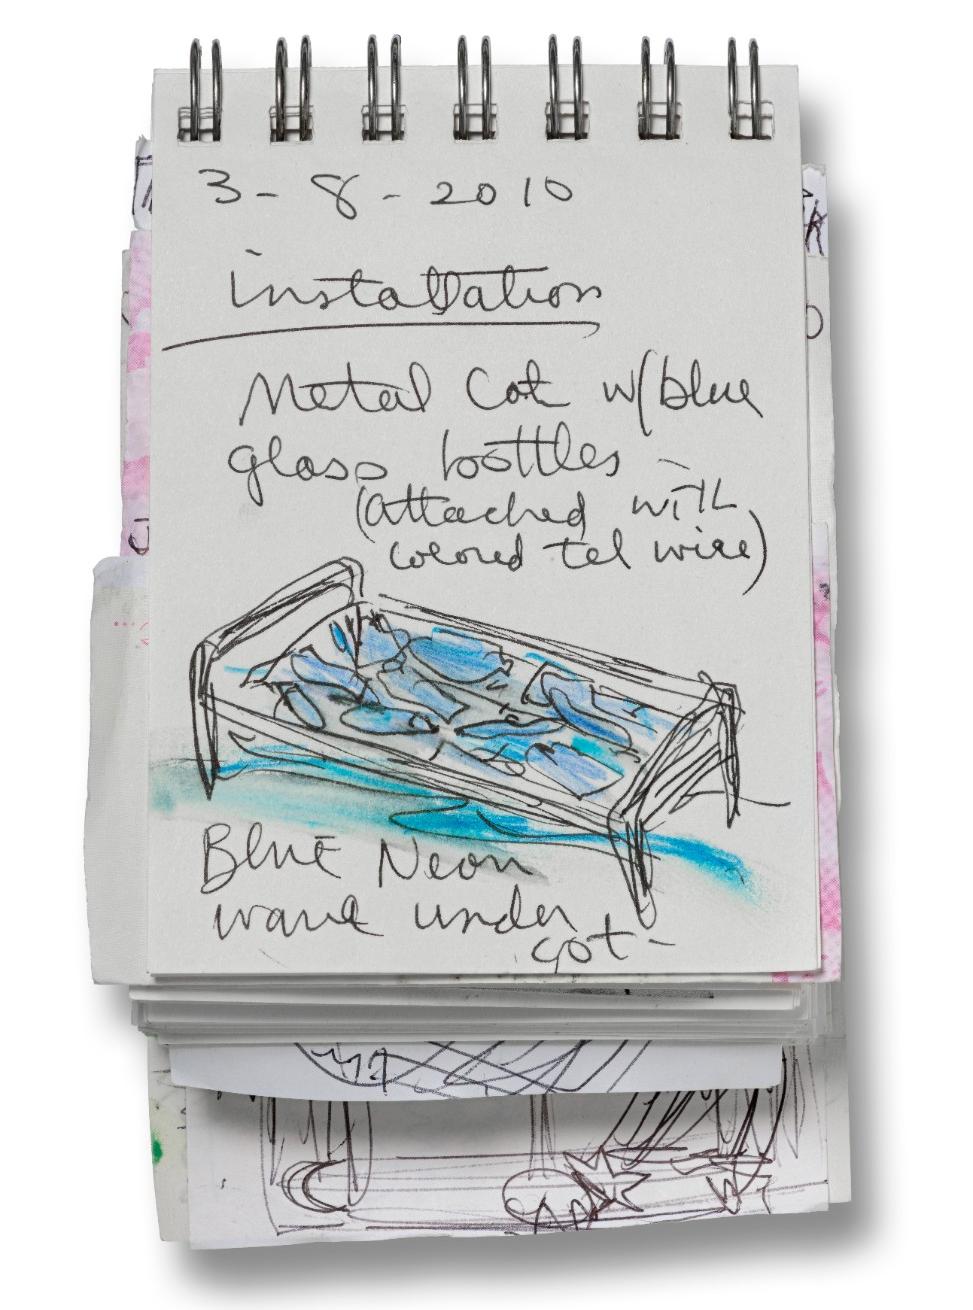 3 - 8 - 2010
installation
Metal Cot w/blue
glass bottles -
(attached with
colored tel wire)
Blue Neon
wave under
cot -